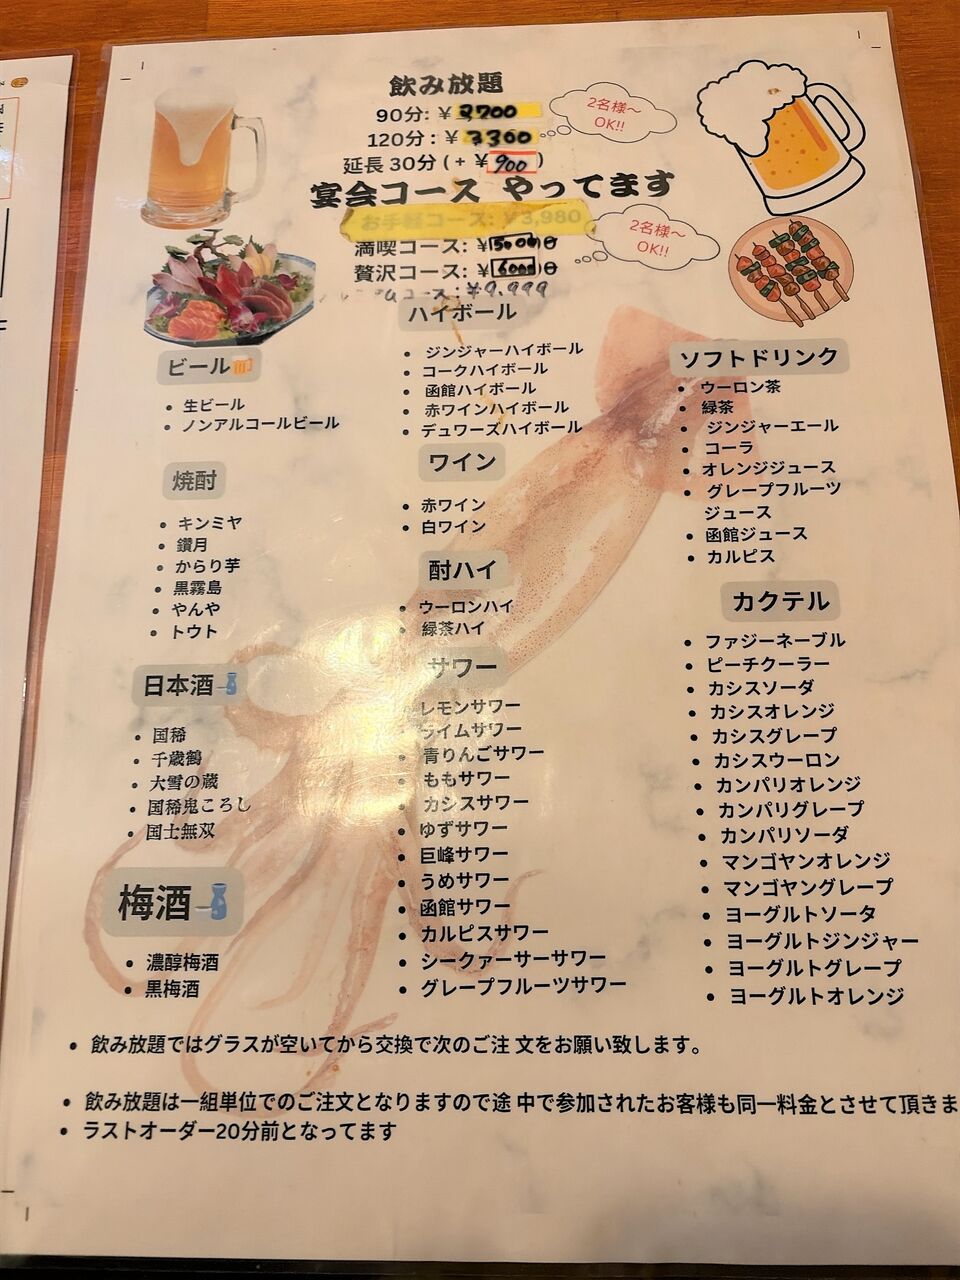 飲み放題
90分: ¥ 2700
120分: ¥ 3300
延長 30分 ( + ¥ 900 )
2名様～
OK!!
宴会コース やってます
お手軽コース: ¥3,980
満喫コース: ¥5000
贅沢コース: ¥6000
コース: ¥9,999
2名様～
OK!!
ビール
生ビール
ノンアルコールビール
焼酎
キンミヤ
鑽月
からり芋
黒霧島
やんや
トウト
日本酒
国稀
千歳鶴
大雪の蔵
国稀鬼ころし
国士無双
梅酒
濃醇梅酒
黒梅酒
ハイボール
ジンジャーハイボール
コークハイボール
函館ハイボール
赤ワインハイボール
デュワーズハイボール
ワイン
赤ワイン
白ワイン
酎ハイ
ウーロンハイ
緑茶ハイ
サワー
レモンサワー
ライムサワー
青りんごサワー
ももサワー
カシスサワー
ゆずサワー
巨峰サワー
うめサワー
函館サワー
カルピスサワー
シークァーサーサワー
グレープフルーツサワー
ソフトドリンク
ウーロン茶
緑茶
ジンジャーエール
コーラ
オレンジジュース
グレープフルーツ
ジュース
函館ジュース
カルピス
カクテル
ファジーネーブル
ピーチクーラー
カシスソーダ
カシスオレンジ
カシスグレープ
カシスウーロン
カンパリオレンジ
カンパリグレープ
カンパリソーダ
マンゴヤンオレンジ
マンゴヤングレープ
ヨーグルトソータ
ヨーグルトジンジャー
ヨーグルトグレープ
ヨーグルトオレンジ
飲み放題ではグラスが空いてから交換で次のご注 文をお願い致します。
飲み放題は一組単位でのご注文となりますので途 中で参加されたお客様も同一料金とさせて頂きま
ラストオーダー20分前となってます